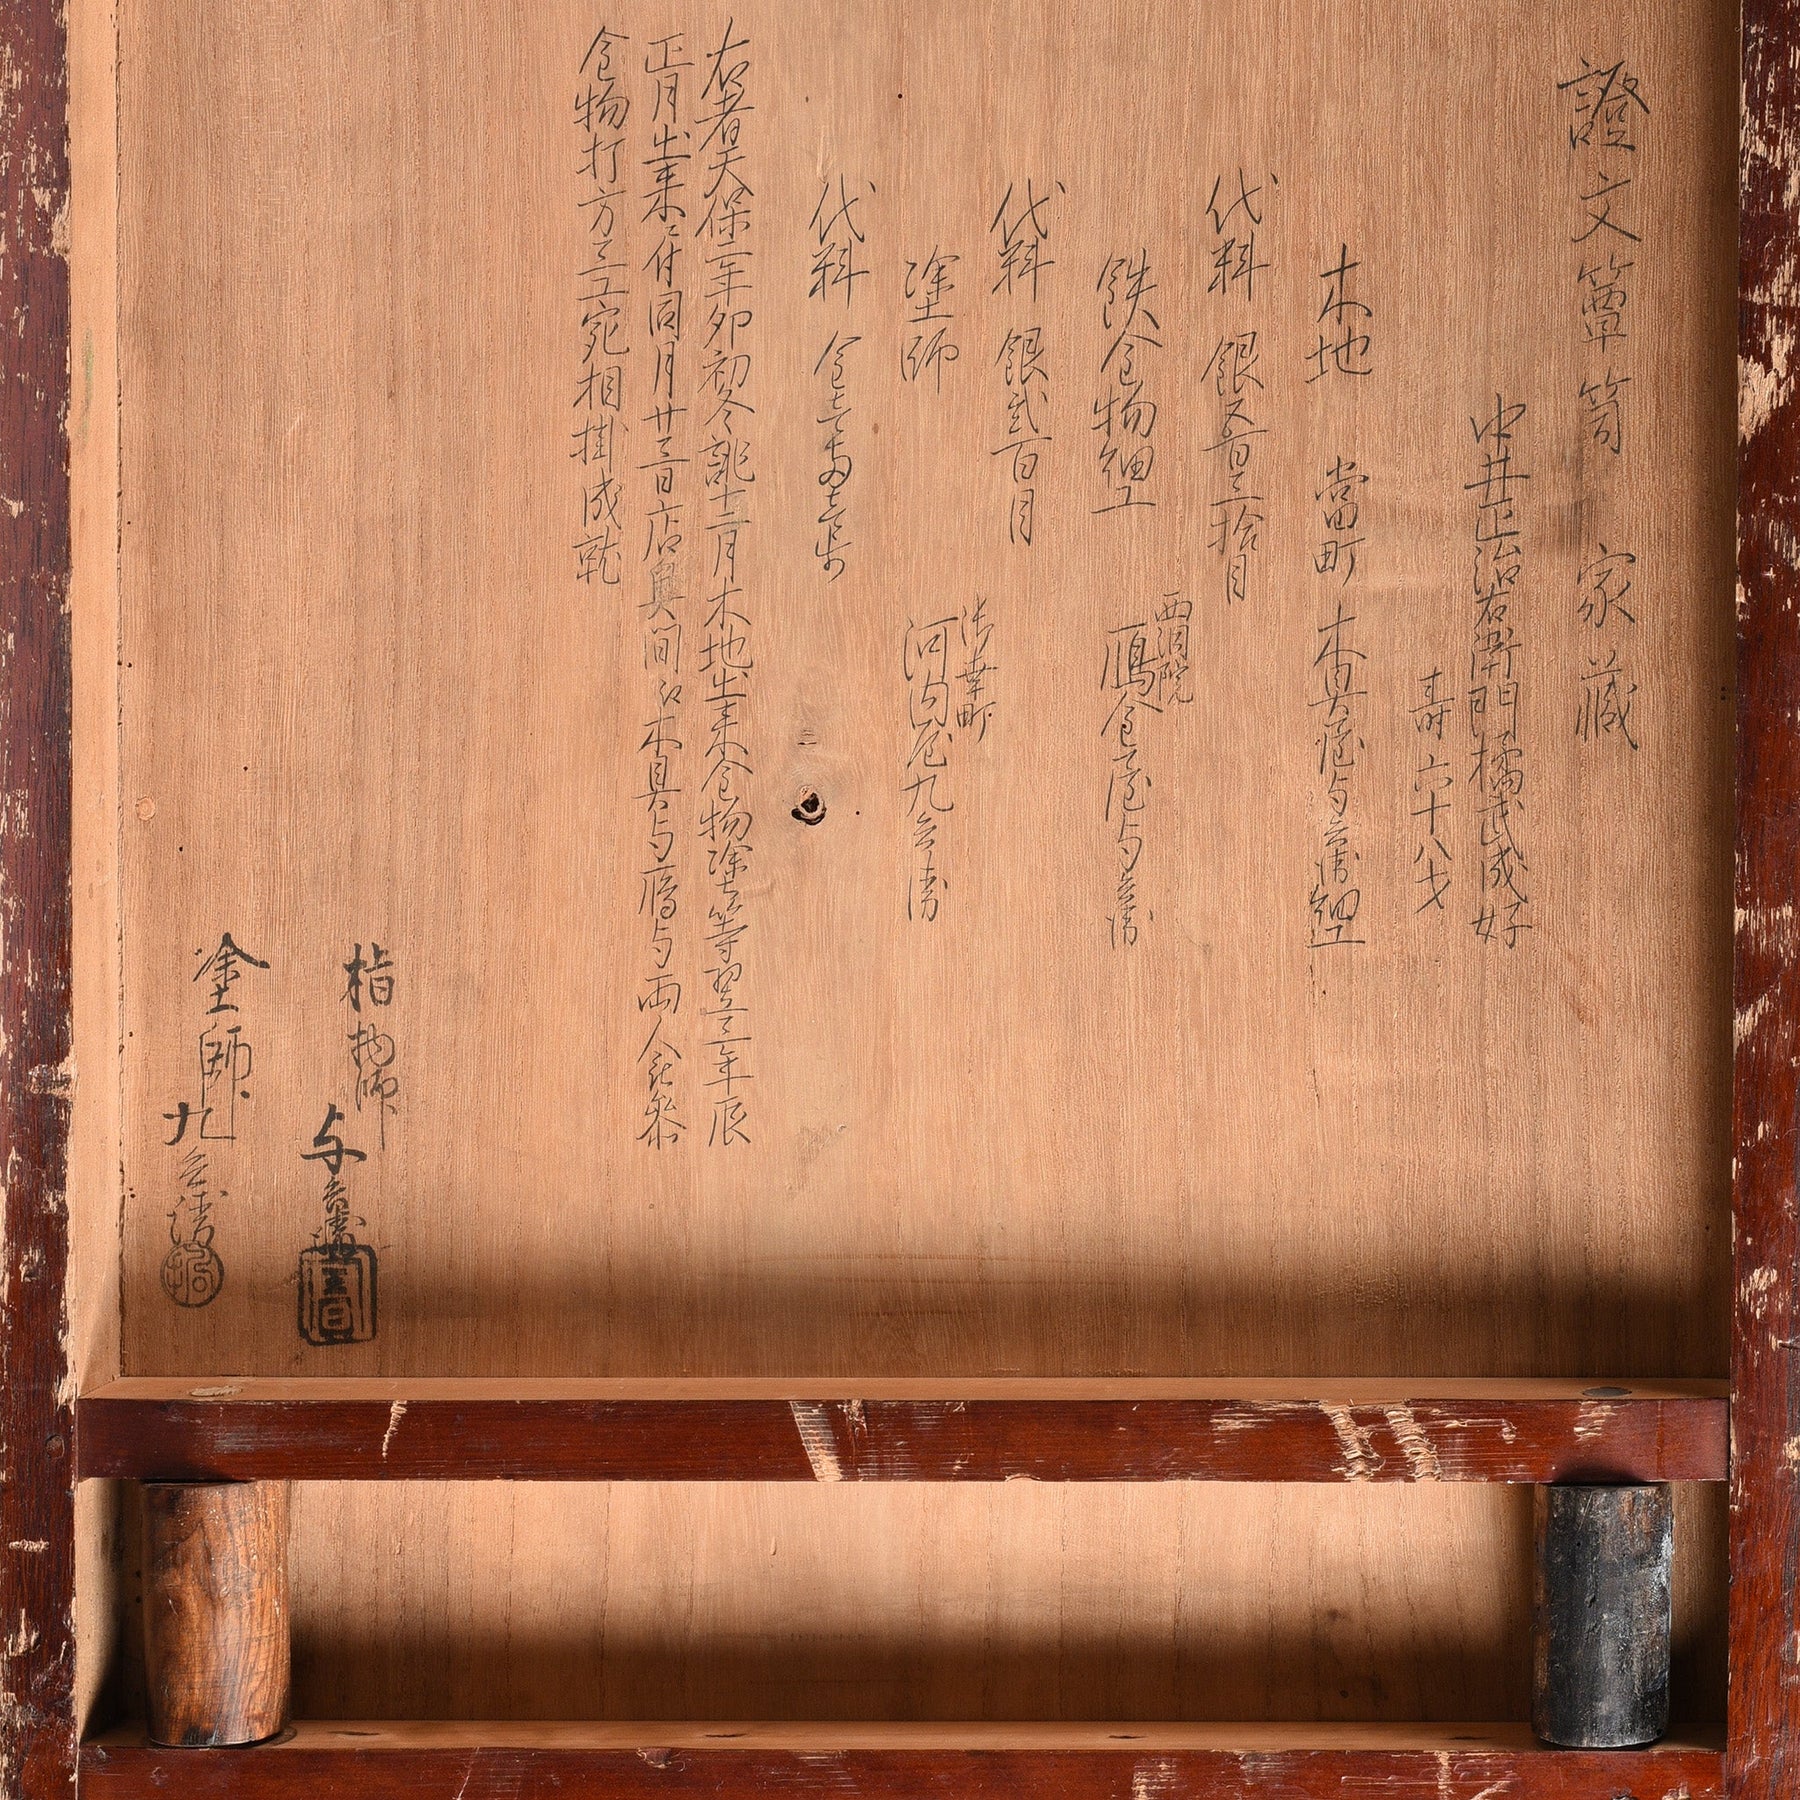 證文簞笥 家藏
中井正治右衛門橘武成好
壽六十八才
木地 當町 木具屋与兵衛細工
代料 銀五百三拾目
鉄金物細工 西洞院 鴈金屋与兵衛
代料 銀弐百目
塗師 御幸町 河内屋九兵衛
代料 金壹両壹歩
右者天保二年卯初冬誂十二月木地出来金物塗等翌三年辰
正月出来ニ付同月廿三日店奥間江木具与鴈与両人参
金物打方三工宛相掛成就
指物師 与兵衛
塗師 九兵衛